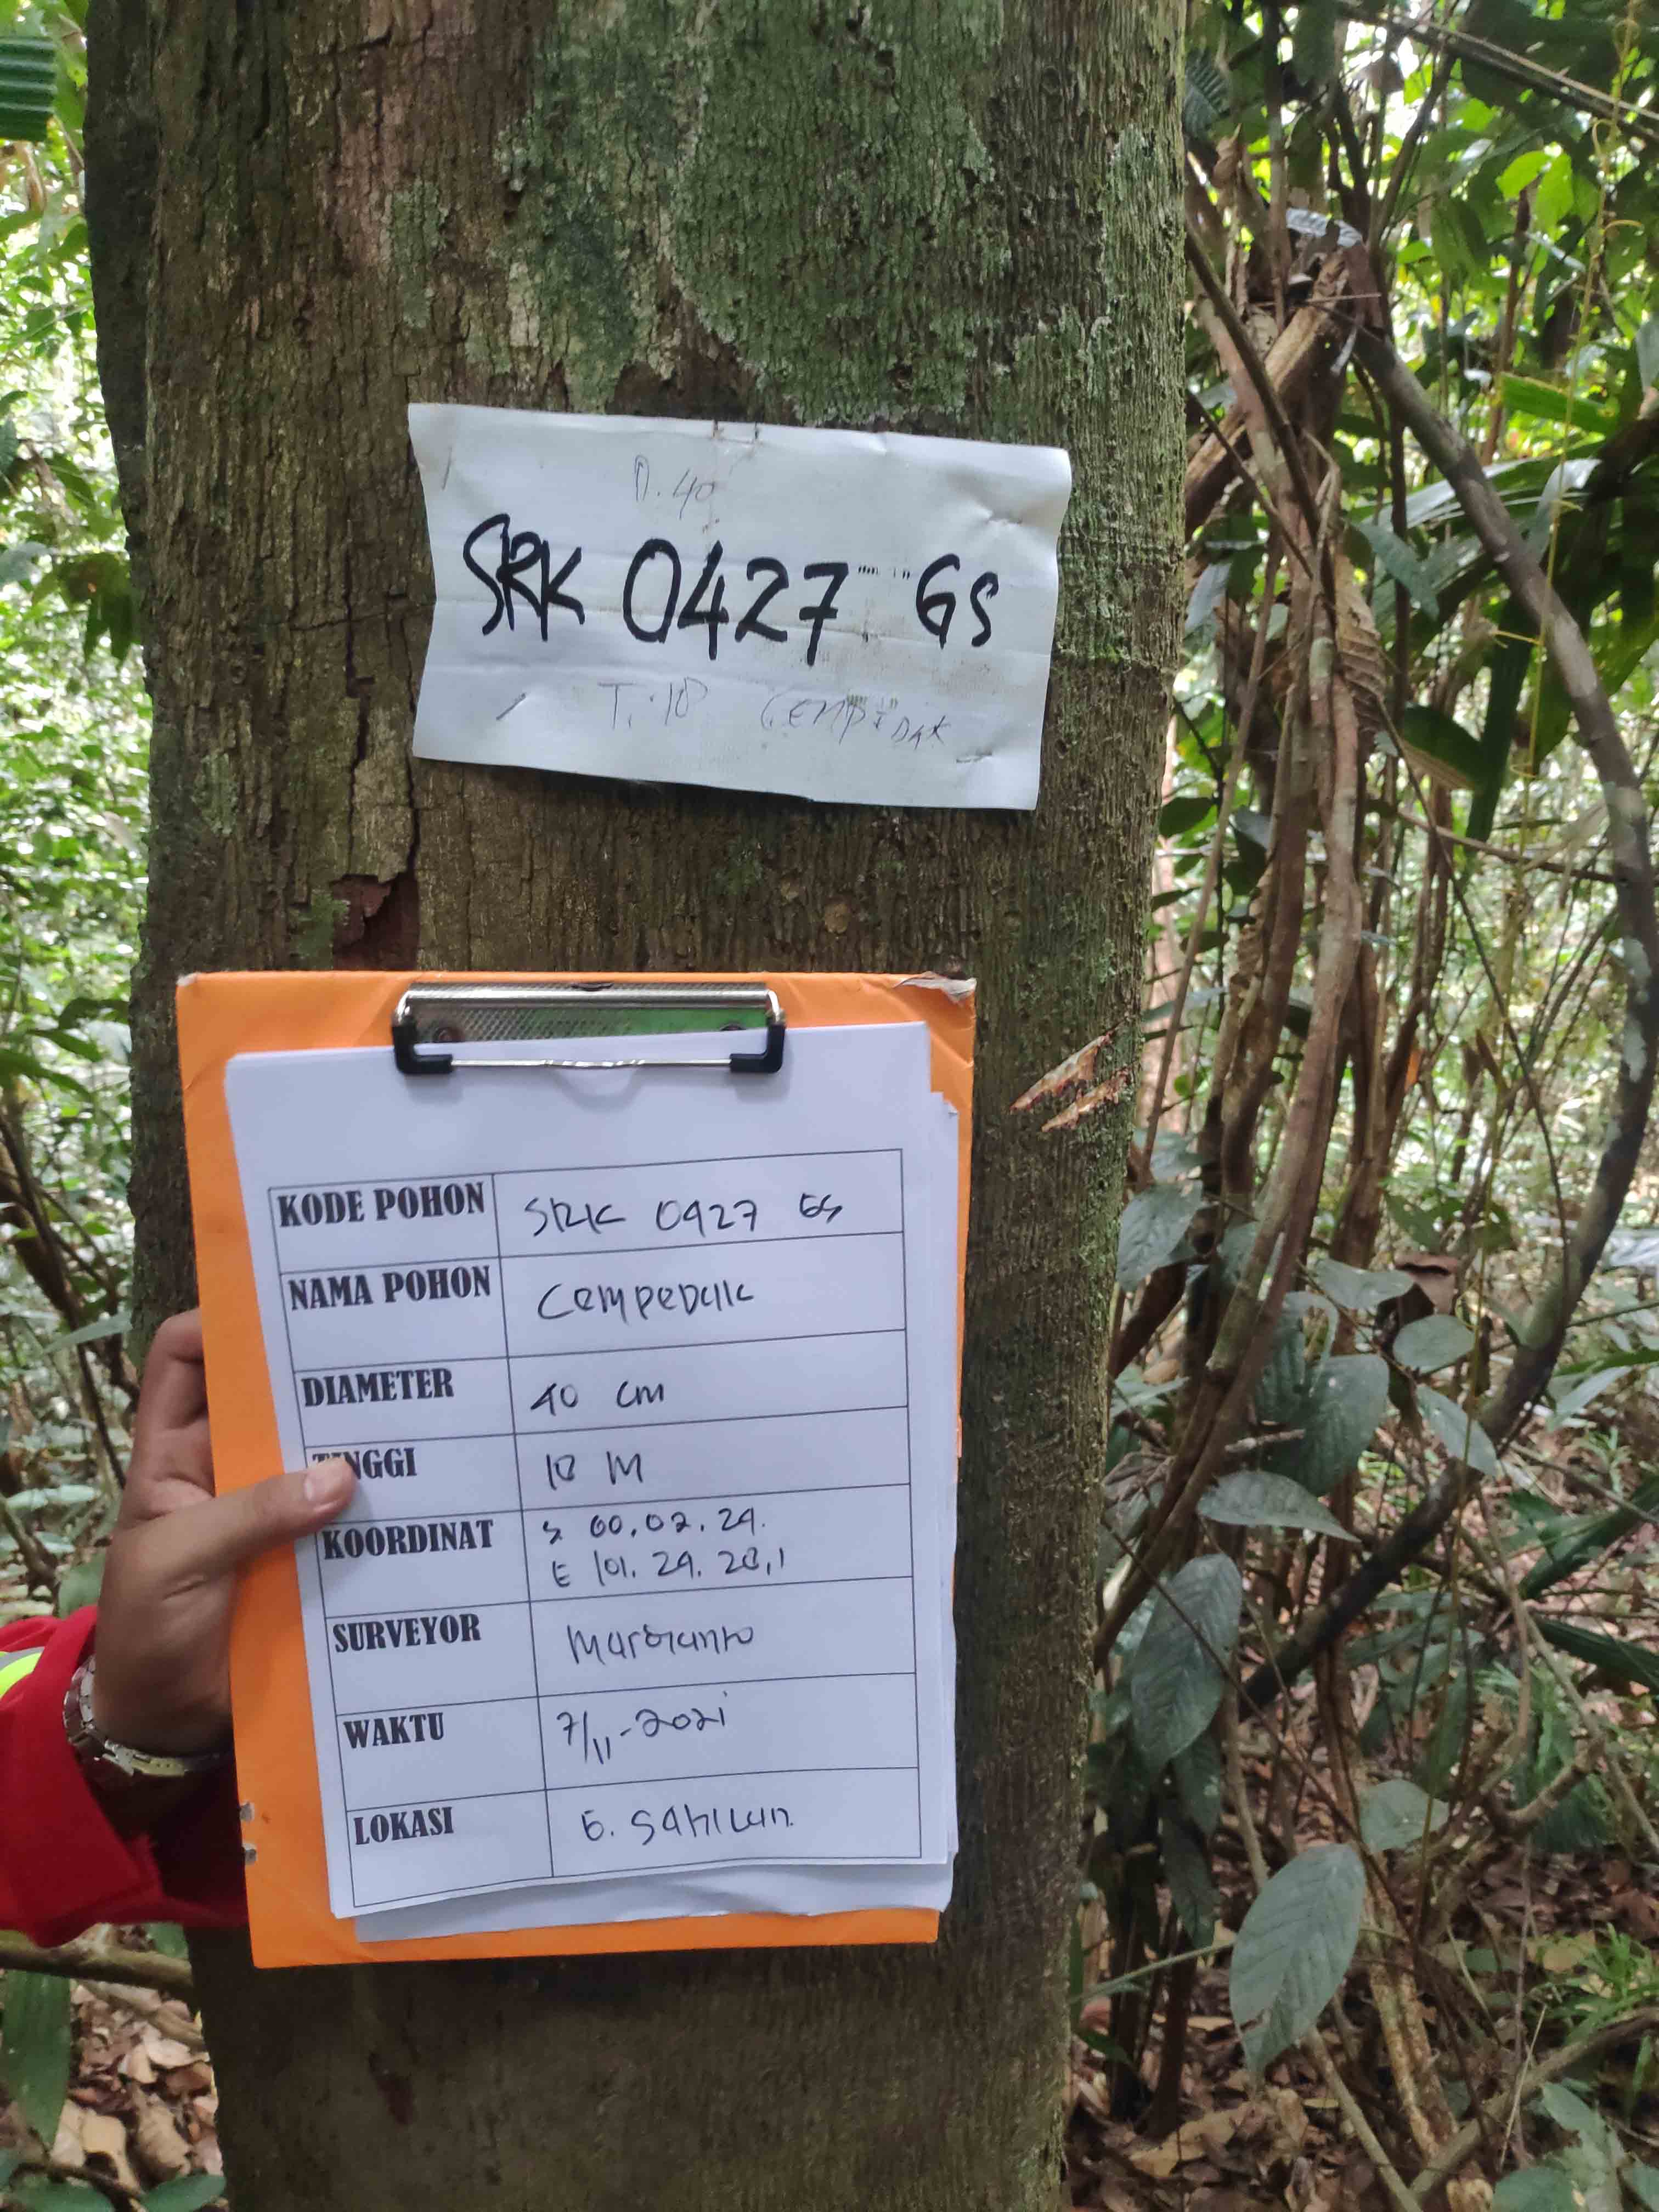 D. 40
SRK 0427 GS
T. 18 CEMPEDAK
KODE POHON SRK 0427 GS
NAMA POHON CemPeDak
DIAMETER 40 cm
TINGGI 18 M
KOORDINAT S 00.02.24.
E 101.24.28,1
SURVEYOR Margianto
WAKTU 7/11-2021
LOKASI G. Sahilan